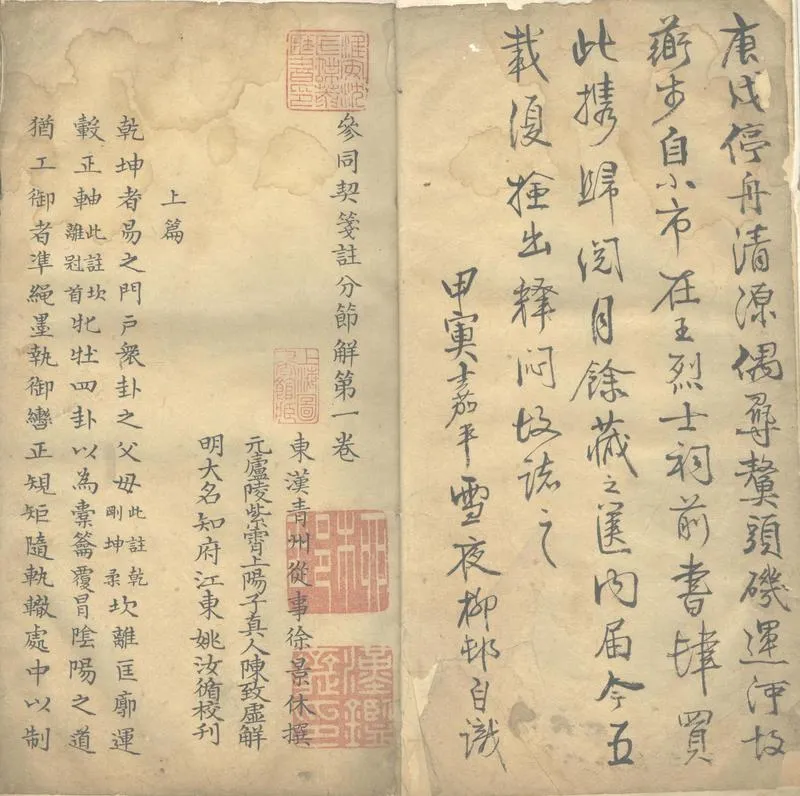 庚戌停舟清源偶尋鰲頭磯運河故
蘅步自小市在王烈士祠前書肆買
此攜歸閱月餘藏之篋内届今五
載復撿出釋悶故誌之
甲寅嘉平雪夜柳邨自識
參同契箋註分節解第一卷
東漢青州從事徐景休撰
元廬陵紫霄上陽子真人陳致虛解
明大名知府江東姚汝循校刊
上篇
乾坤者易之門戶衆卦之父毋此註乾剛坤柔坎離匡廓運
轂正軸此註坎離尅首牝牡四卦以為橐籥覆冒陰陽之道
猶工御者準繩墨執御轡正規矩隨軌轍處中以制
上海圖書館藏